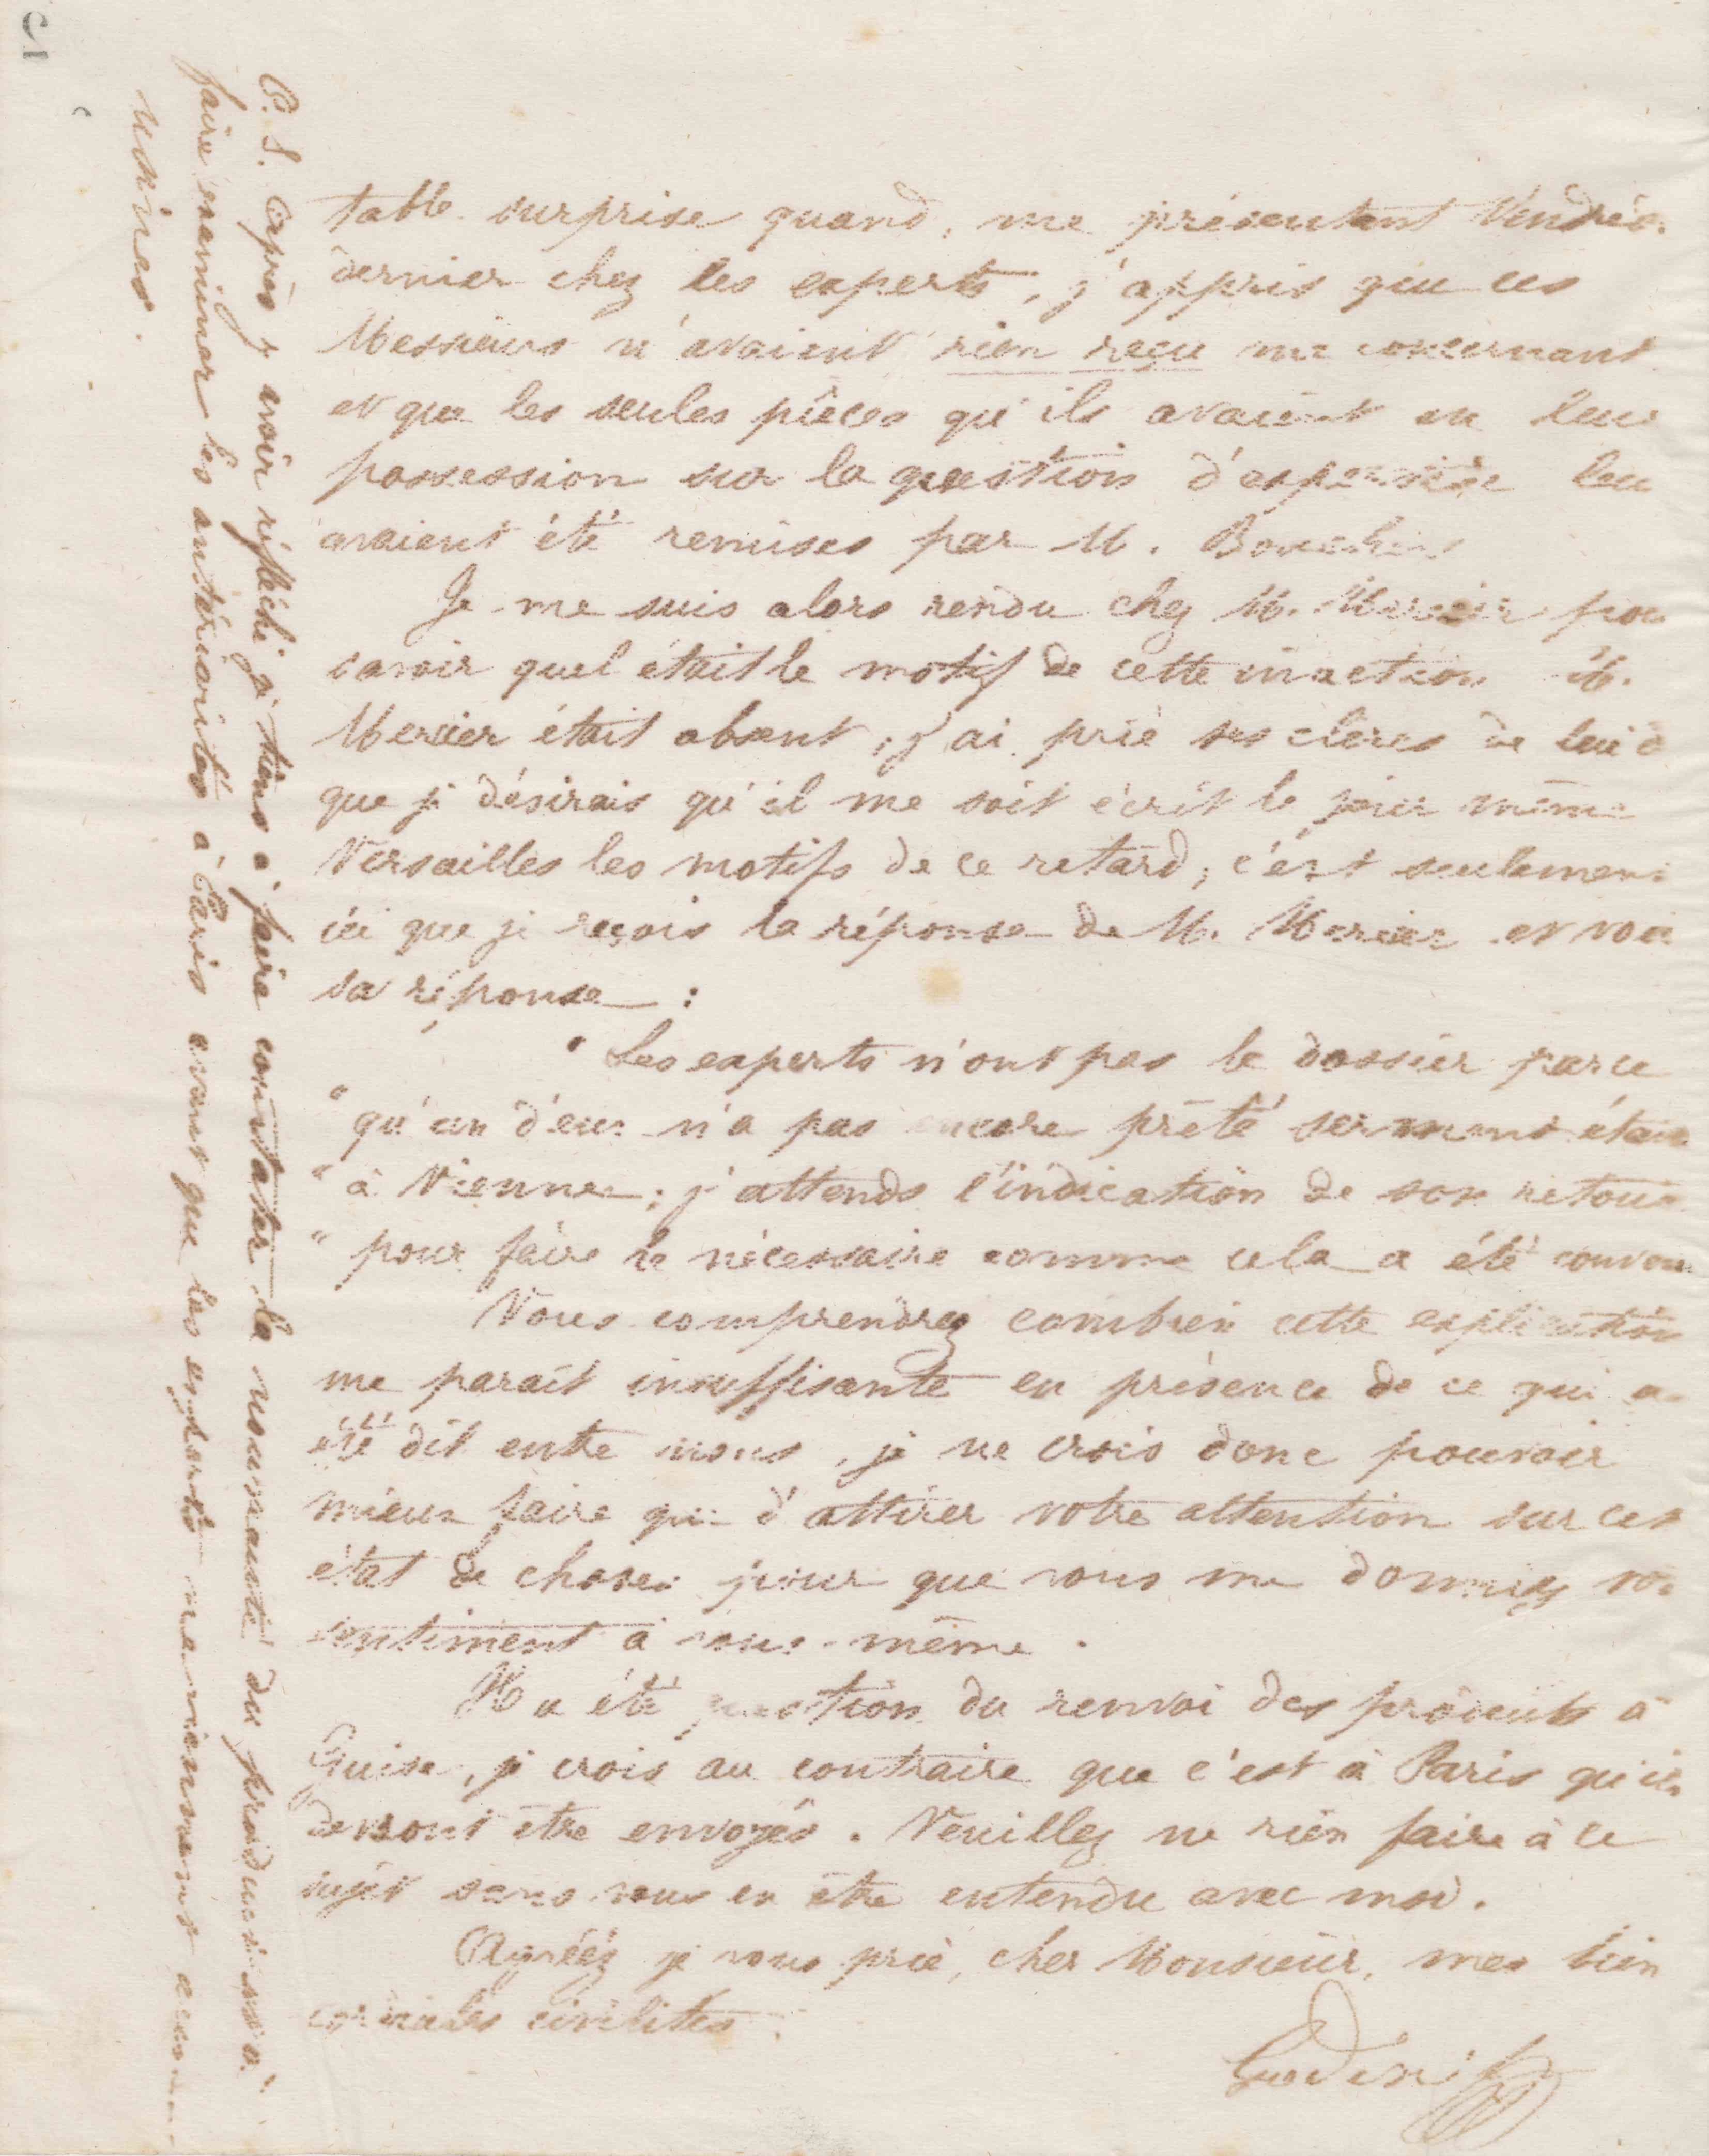 table surprise quand, me présentant Vendredi
dernier chez les experts, j'appris que ces
Messieurs n'avaient rien reçu me concernant
et que les seules pièces qu'ils avaient en leur
possession sur la question d'expertise leur
avaient été remises par M.
Je me suis alors rendu chez M. Mercier pour
savoir quel était le motif de cette inaction M.
Mercier était absent, j'ai prié ses clercs de lui d
que je désirais qu'il me soit écrit le jour même
Versailles les motifs de ce retard, c'est seulement
ici que je reçois la réponse de M. Mercier et voici
sa réponse :
" Les experts n'ont pas le dossier parce
" qu'un d'eux n'a pas encore prêté serment étant
" à Vienne ; j'attends l'indication de son retour
" pour faire le nécessaire comme cela a été convenu
Vous comprendrez combien cette explication
me parait insuffisante en présence de ce qui a
été dit entre nous, je ne crois donc pouvoir
mieux faire que d'attirer votre attention sur cet
état de choses pour que vous me donniez vo
sentiment à vous-même.
Il a été question du renvoi des produits à
Guise, je crois au contraire que c'est à Paris qu'ils
devront être envoyés. Veuillez ne rien faire à ce
sujet sans vous en être entendu avec moi.
Agréez je vous prie, cher Monsieur, mes bien
cordiales civilités.
Godin
P. S. Après y avoir réfléchi je tiens à faire constater la nouveauté du produit
faire examiner les antériorités à Paris avant que les experts ne viennent aux
usines.